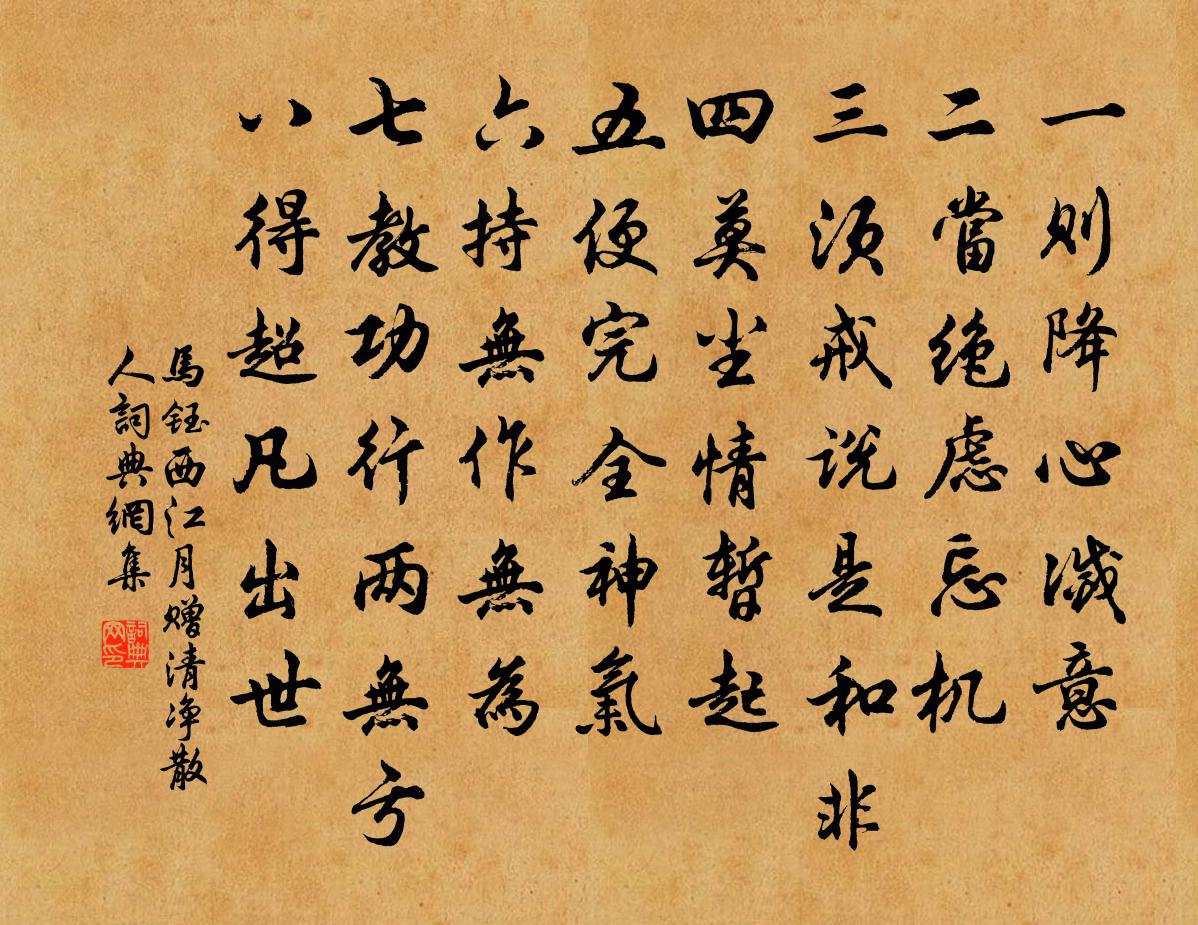 一则降心滅意
二當绝慮忘机
三须戒说是和非
四莫尘情暫起
五便完全神氣
六持無作無為
七教功行两無亏
八得超凡出世
馬鈺西江月赠清净散
人詞典網集
詞典
网印